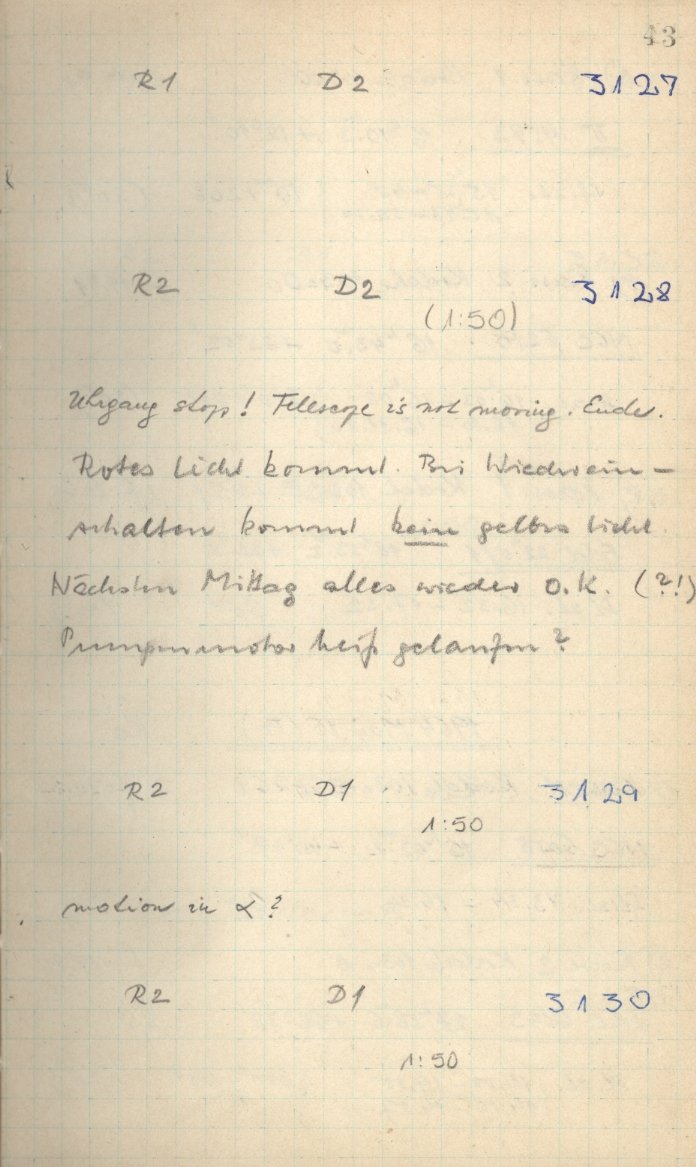 43
R1 D2 3127
R2 D2 3128
(1:50)
Uhrgang stop! Telescope is not moving. Ende.
Rotes Licht kommt. Bei Wiederein-
schalten kommt kein gelbes Licht.
Nächsten Mittag alles wieder O.K. (?!)
Pumpenmotor heiß gelaufen?
R2 D1 3129
1:50
motion in α?
R2 D1 3130
1:50